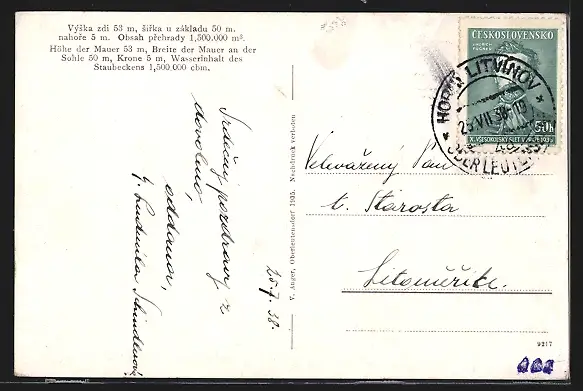 Výška zdi 53 m, šířka u základu 50 m.
nahoře 5 m. Obsah přehrady 1,500.000 m³.
Höhe der Mauer 53 m, Breite der Mauer an der
Sohle 50 m, Krone 5 m, Wasserinhalt des
Staubeckens 1,500.000 cbm.
Srdečný pozdrav z
dovolené,
oddaná,
Ludmila
25.7.38.
V. Anger, Oberleutensdorf 1935. Nachdruck verboten
ČESKOSLOVENSKO
JINDŘICH
FÜGNER
50h
X. VŠESOKOLSKÝ SLET V PRAZE 1938
HORNÍ LITVÍNOV
25.VII.38.19
OBERLEUTENSDORF
Velevážený Pan
t. Starosta
Litoměřice.
9217